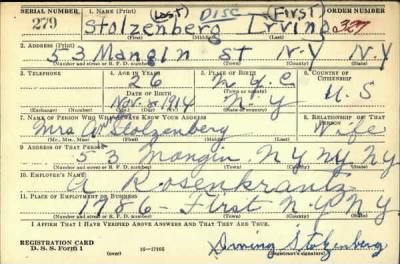 SERIAL NUMBER 1. NAME (Print) (Last) DISC (First) ORDER NUMBER
279 Stolzenberg Irving 327
(First) (Middle) (Last)
2. ADDRESS (Print)
53 Mangin St N.Y N.Y
(Number and street or R. F. D. number) (Town) (County) (State)
3. TELEPHONE 4. AGE IN YEARS 5. PLACE OF BIRTH 6. COUNTRY OF CITIZENSHIP
26 N.Y.C
DATE OF BIRTH (Town or county) U.S
Nov. 8 1914 N.Y
(Exchange) (Number) (Mo.) (Day) (Yr.) (State or country)
7. NAME OF PERSON WHO WILL ALWAYS KNOW YOUR ADDRESS 8. RELATIONSHIP OF THAT PERSON
Mrs Stolzenberg Wife
(Mr., Mrs., Miss) (First) (Middle) (Last)
9. ADDRESS OF THAT PERSON
53 Mangin N.Y N.Y N.Y
(Number and street or R. F. D. number) (Town) (County) (State)
10. EMPLOYER'S NAME
A Rosenkrantz
11. PLACE OF EMPLOYMENT OR BUSINESS
1786 - First N.Y N.Y.
(Number and street or R. F. D. number) (Town) (County) (State)
I AFFIRM THAT I HAVE VERIFIED ABOVE ANSWERS AND THAT THEY ARE TRUE.
REGISTRATION CARD
D. S. S. Form 1 (over) 16-17105 Irving Stolzenberg
(Registrant's signature)